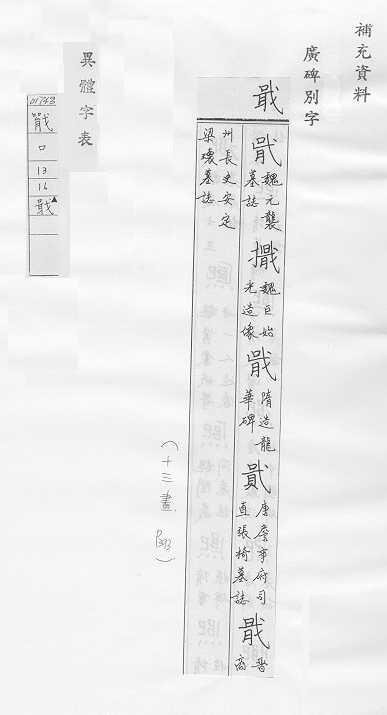 補充資料
廣碑別字
戢
魏元襲墓誌
魏巨始光造像
隋造龍華碑
唐詹事府司直張椅墓誌
晉高
州長史安定梁瓌墓誌
(十三畫 P393)
異體字表
01743
口
13
16
戢